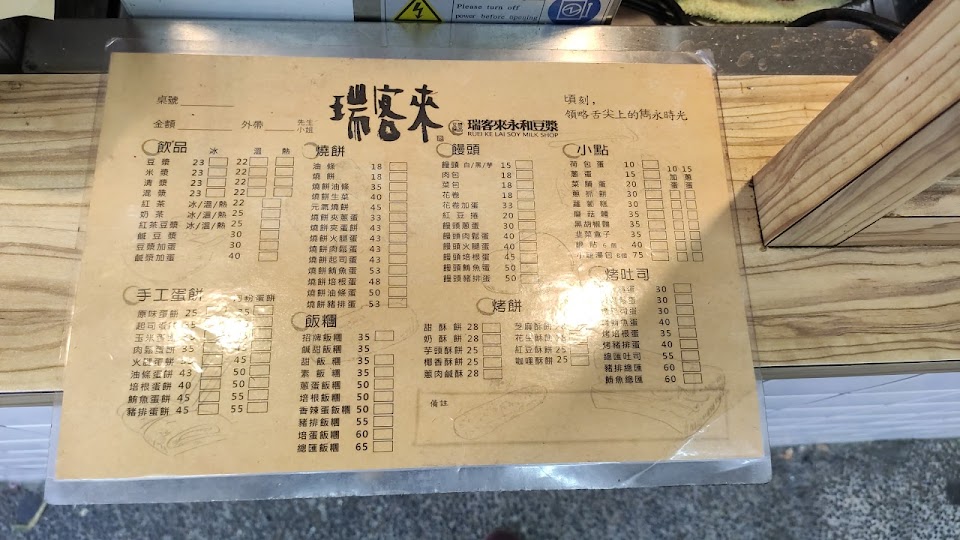 Please turn off
power before opening
桌號
金額 外帶 先生
小姐
瑞客來
瑞客來永和豆漿
RUEI KE LAI SOY MILK SHOP
頃刻，
領略舌尖上的雋永時光
飲品 冰 溫 熱
豆漿 23 22
米漿 23 22
清漿 23 22
混漿 23 22
紅茶 冰/溫/熱 22
奶茶 冰/溫/熱 25
紅茶豆漿 冰/溫/熱 25
鹹豆漿 30
豆漿加蛋 30
鹹漿加蛋 40
燒餅
油條 18
燒餅 18
燒餅油條 35
燒餅生菜 40
元氣燒餅 45
燒餅夾蔥蛋 33
燒餅夾蛋餅 43
燒餅火腿蛋 43
燒餅肉鬆蛋 43
燒餅起司蛋 43
燒餅鮪魚蛋 53
燒餅培根蛋 48
燒餅油條蛋 50
燒餅豬排蛋 53
饅頭
饅頭 白/黑/芋 15
肉包 18
菜包 18
花卷 18
花卷加蛋 33
紅豆捲 20
饅頭蔥蛋 30
饅頭肉鬆蛋 40
饅頭火腿蛋 40
饅頭培根蛋 45
饅頭鮪魚蛋 50
饅頭豬排蛋 50
小點
10 15
加 蔥
蛋 蛋
荷包蛋 10
蔥蛋 15
菜頭蛋 20
蔥抓餅 30
蘿蔔糕 30
蘑菇麵 35
黑胡椒麵 35
韭菜盒子 35
鍋貼 6個 40
小籠湯包 6個 75
手工蛋餅 蛋餅
原味蛋餅 25 25
起司蛋餅
玉米蛋餅
肉鬆蛋餅 35
火腿蛋餅 50
油條蛋餅 43 50
培根蛋餅 40 50
鮪魚蛋餅 45 55
豬排蛋餅 45 55
飯糰
招牌飯糰 35
鹹甜飯糰 35
甜飯糰 35
素飯糰 35
蔥蛋飯糰 50
培根飯糰 50
香辣蛋飯糰 50
豬排飯糰 55
培蛋飯糰 60
總匯飯糰 65
烤餅
甜酥餅 28
奶酥餅 28
芋頭酥餅 25
椰香酥餅 25
蔥肉鹹酥 28
芝麻酥餅
花生酥餅
紅豆酥餅 25
咖哩酥餅 25
烤吐司
30
30
30
烤培根蛋 35
烤豬排蛋 40
總匯吐司 55
豬排總匯 60
鮪魚總匯 60
備註